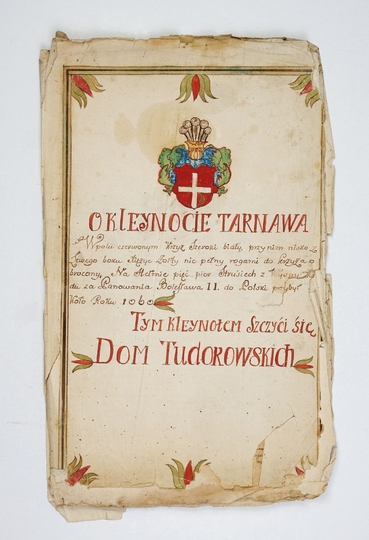 O KLEJNOCIE TARNAWA
W polu czerwonym Krzyż szeroki biały, przy nim nisko z
lewego boku Xiężyc żołty nie pełny rogami do krzyża o
brocony, Na Hełmie pięć pior Strusich z
du za Panowania Bolesława II. do Polski przybył
koło Roku 1060
TYM KLEJNOTEM SZCZYCI SIĘ
DOM TUDOROWSKICH